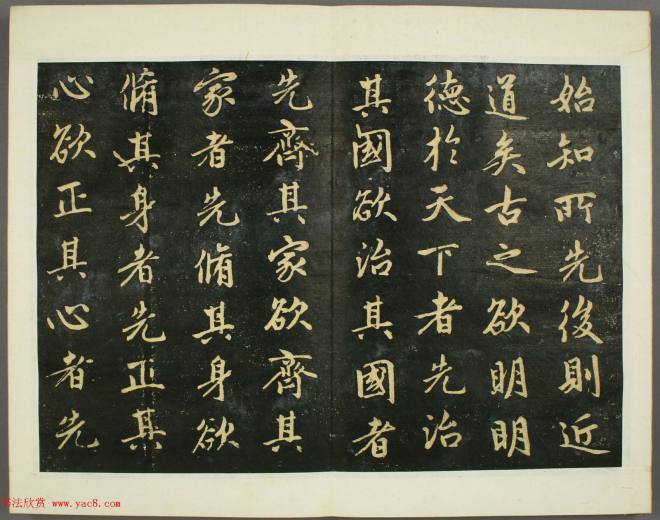 始知所先後則近
道矣古之欲明明
德於天下者先治
其國欲治其國者
先齊其家欲齊其
家者先脩其身欲
脩其身者先正其
心欲正其心者先
书法欣赏 www.yac8.com